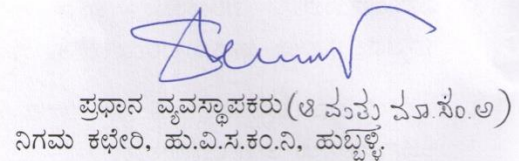 ಪ್ರಧಾನ ವ್ಯವಸ್ಥಾಪಕರು(ಆ ಮತ್ತು ಮಾ.ಸಂ.ಅ)
ನಿಗಮ ಕಛೇರಿ, ಹು.ವಿ.ಸ.ಕಂ.ನಿ, ಹುಬ್ಬಳ್ಳಿ.